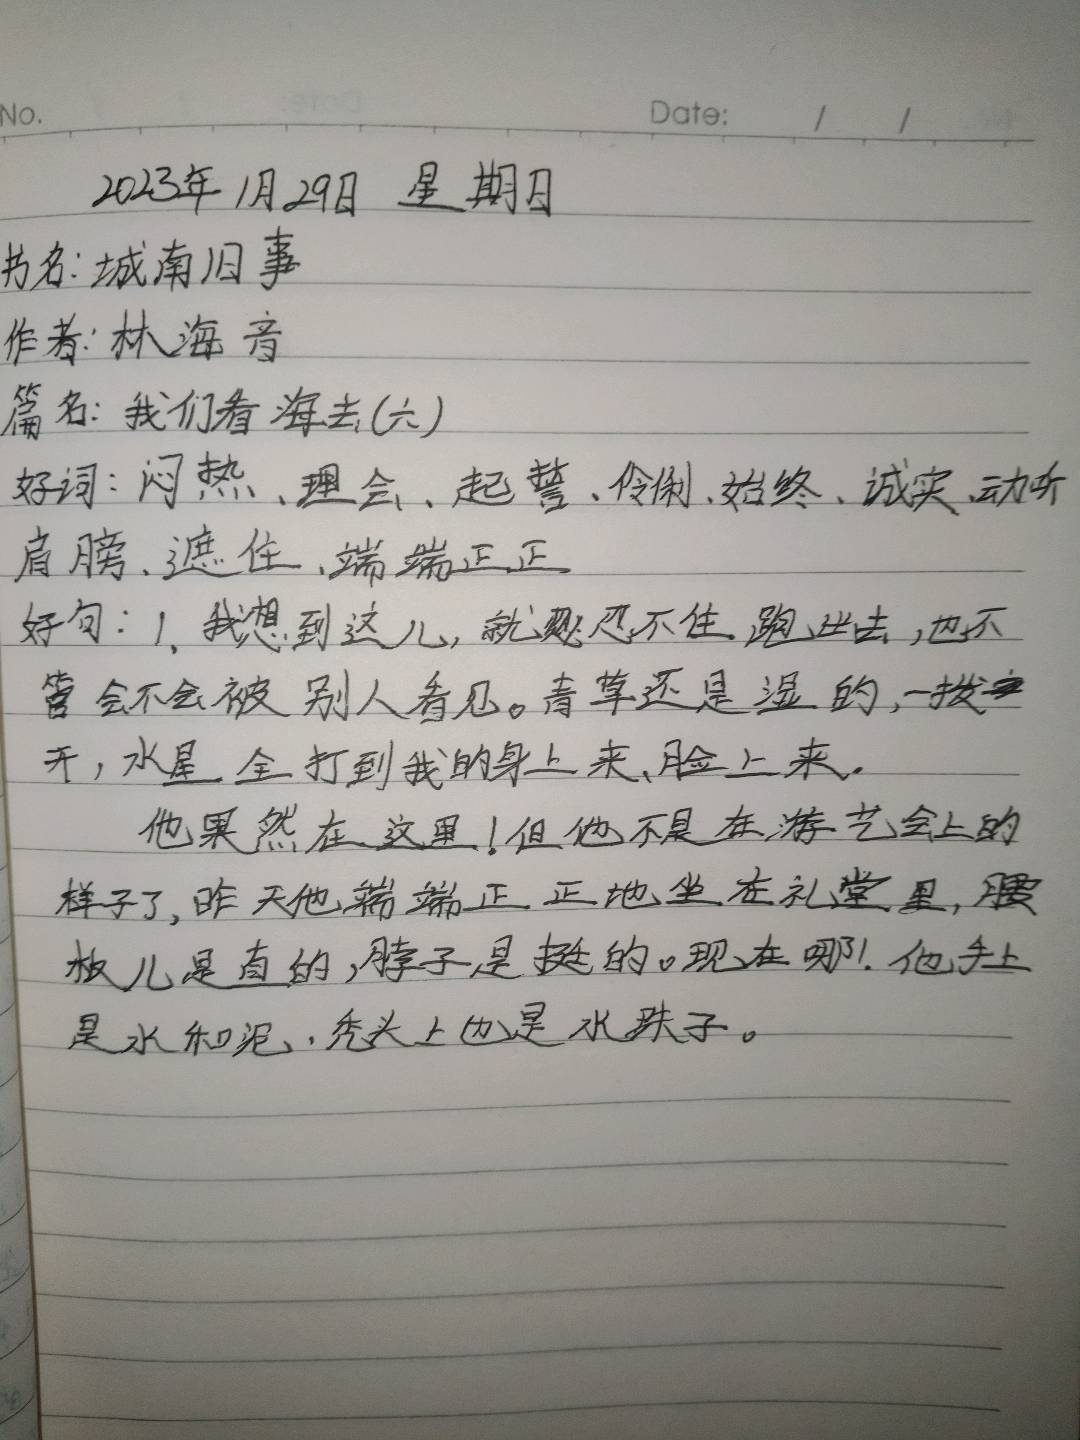 No. Date: / /
2023年1月29日 星期日
书名:城南旧事
作者:林海音
篇名:我们看海去(六)
好词:闷热、理会、起誓、伶俐、始终、诚实、动听
肩膀、遮住、端端正正
好句:1、我想到这儿,就忍不住跑出去,也不
管会不会被别人看见。青草还是湿的,一拨
开,水星全打到我的身上来、脸上来.
他果然在这里!但他不是在游艺会上的
样子了,昨天他端端正正地坐在礼堂里,腰
板儿是直的,脖子是挺的。现在哪!他手上
是水和泥,秃头上也是水珠子。